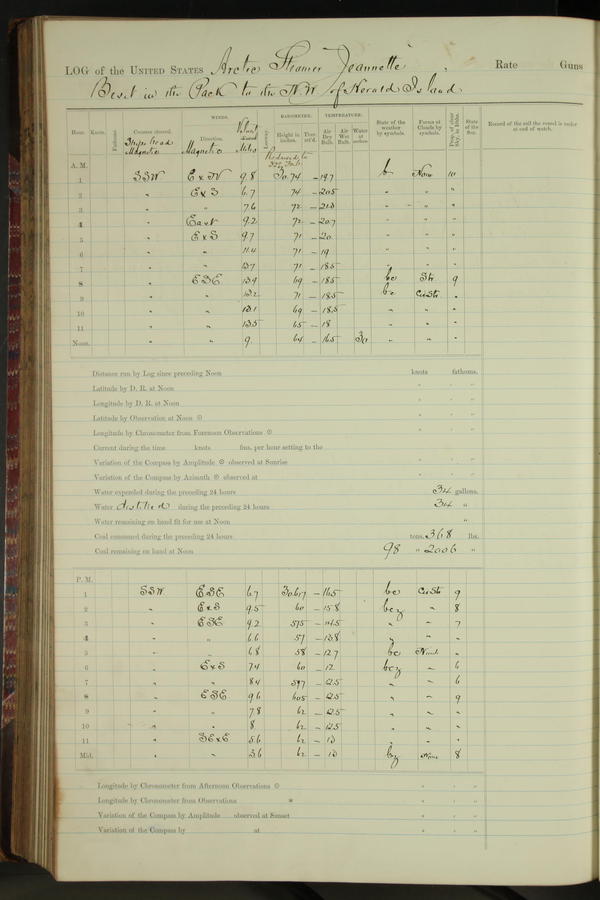 LOG of the UNITED STATES Arctic Steamer Jeannette Rate Guns
Beset in the Pack to the N.W. of Herald Island
Hour. Knots. Fathoms. Courses steered. WINDS. BAROMETER. TEMPERATURE. State of the weather by symbols. Forms of Clouds by symbols. Prop. of clear Sky, in 10ths. State of the Sea. Record of the sail the vessel is under at end of watch.
Direction. Height in inches. Ther. att'd. Air Dry Bulb. Air Wet Bulb. Water at surface.
Ship's head Magnetic Magnetic Miles Reduced to
A. M.
1 SSW E x N 9.8 30.74 -19.7 b None 10
2 " E x S 6.7 74 -20.5 " " "
3 " " 7.6 72 -21.3 " " "
4 " East 9.2 72 -20.7 " " "
5 " E x S 9.7 71 -20. " " "
6 " " 11.4 71 -19 " " "
7 " " 13.7 71 -18.5 " " "
8 " ESE 13.9 69 -18.5 bc Str 9
9 " " 13.2 71 -18.5 bc CirStr "
10 " " 13.1 69 -18.5 " " "
11 " " 13.5 65 -18 " " "
Noon. " " 9. 64 -16.5 30 " " "
Distance run by Log since preceding Noon knots fathoms.
Latitude by D. R. at Noon ° ' "
Longitude by D. R. at Noon ° ' "
Latitude by Observation at Noon ⊙ ° ' "
Longitude by Chronometer from Forenoon Observations ⊙ ° ' "
Current during the time knots fms. per hour setting to the
Variation of the Compass by Amplitude ⊙ observed at Sunrise ° ' "
Variation of the Compass by Azimuth ⊙ observed at ° ' "
Water expended during the preceding 24 hours 34 gallons.
Water distilled during the preceding 24 hours 34 "
Water remaining on hand fit for use at Noon "
Coal consumed during the preceding 24 hours tons. 368 lbs.
Coal remaining on hand at Noon 98 " 2006 "
P. M.
1 SSW. ESE 6.7 30.617 -16.5 bc CirStr 9
2 " E x S 9.5 60 -15.8 bcz " 8
3 " ESE 9.2 575 -14.5 " " 7
4 " " 6.6 57 -13.8 " " "
5 " " 6.8 58 -12.7 bc "
6 " E x S 7.4 60 -12 bcz " 6
7 " " 8.4 597 -12.5 " " 6
8 " ESE 9.6 605 -12.5 " " 9
9 " " 7.8 62 -12.5 " " "
10 " " 8 62 -12.5 " " "
11 " SE x E 5.6 62 -13 " " "
Mid. " " 3.6 62 -13 bz None 8
Longitude by Chronometer from Afternoon Observations ⊙ ° ' "
Longitude by Chronometer from Observations * ° ' "
Variation of the Compass by Amplitude observed at Sunset ° ' "
Variation of the Compass by at ° ' "